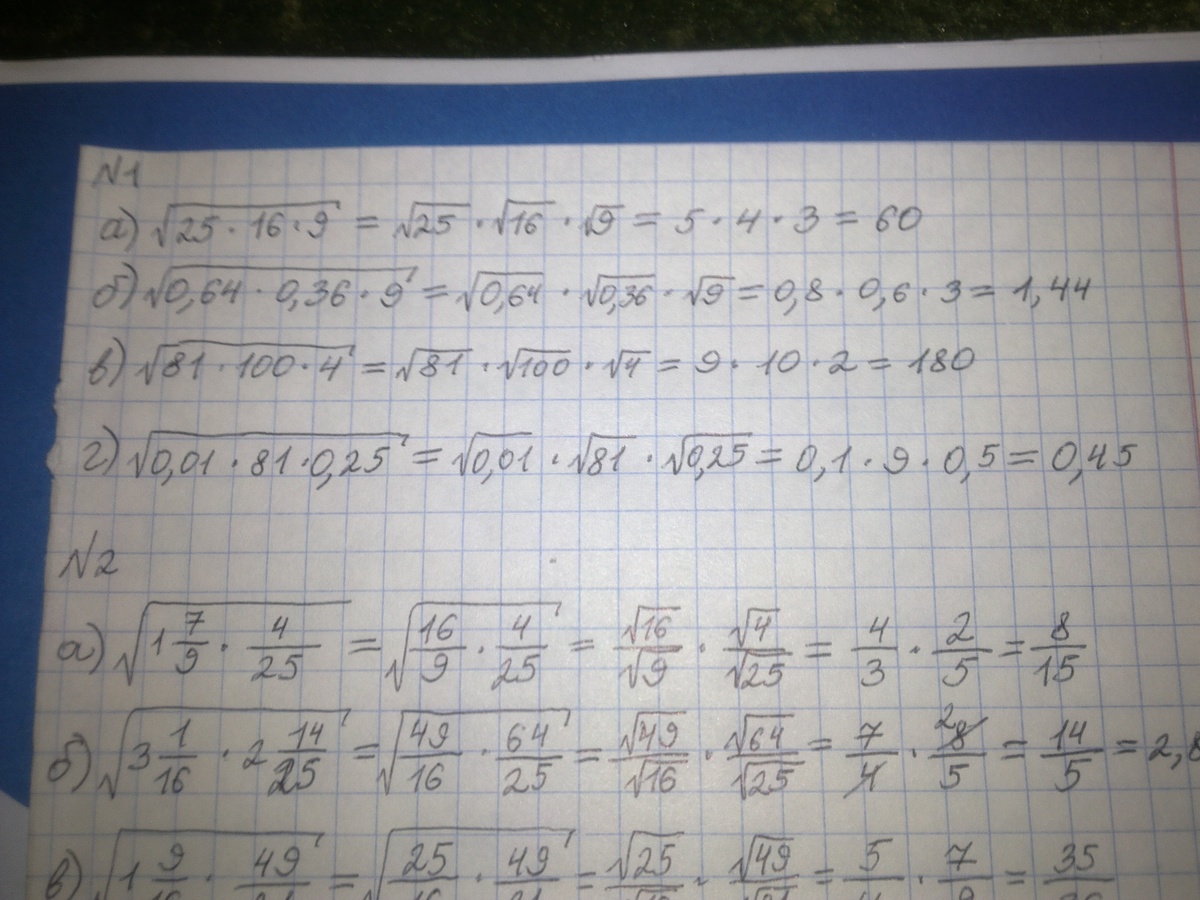 №1
а) √(25 · 16 · 9) = √25 · √16 · √9 = 5 · 4 · 3 = 60
б) √(0,64 · 0,36 · 9) = √0,64 · √0,36 · √9 = 0,8 · 0,6 · 3 = 1,44
в) √(81 · 100 · 4) = √81 · √100 · √4 = 9 · 10 · 2 = 180
г) √(0,01 · 81 · 0,25) = √0,01 · √81 · √0,25 = 0,1 · 9 · 0,5 = 0,45
№2
а) √(1 7/9 · 4/25) = √(16/9 · 4/25) = √16/√9 · √4/√25 = 4/3 · 2/5 = 8/15
б) √(3 1/16 · 2 14/25) = √(49/16 · 64/25) = √49/√16 · √64/√25 = 7/4 · 8/5 2 = 14/5 = 2,8
в) √(1 9/ · 49/ ) = √(25/ · 49/ ) = √25/ · √49/ = 5/ · 7/ = 35/